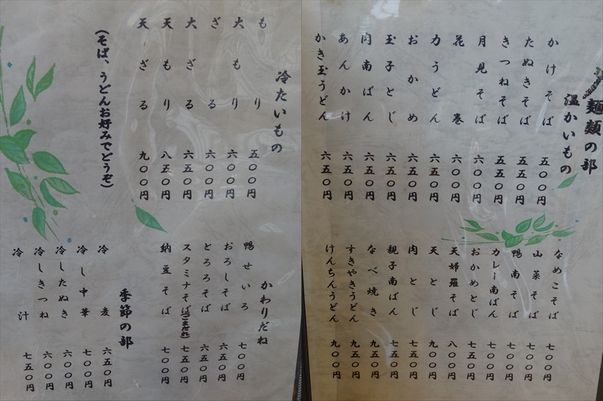 麺類の部
温かいもの
かけそば 五〇〇円
たぬきそば 五〇〇円
きつねそば 五五〇円
月見そば 五五〇円
花巻 六〇〇円
力うどん 六五〇円
おかめ 六五〇円
玉子とじ 六五〇円
肉南ばん 六五〇円
あんかけ 六五〇円
かき玉うどん 六五〇円
なめこそば 七〇〇円
山菜そば 七〇〇円
鴨南そば 七〇〇円
カレー南ばん 七〇〇円
おかめとじ 七五〇円
天婦羅そば 八〇〇円
天とじ 九〇〇円
肉とじ 七五〇円
親子南ばん 七五〇円
なべ焼き 九五〇円
すきやきうどん 九五〇円
けんちんうどん 九〇〇円
冷たいもの
もり 五〇〇円
大もり 六〇〇円
ざる 六〇〇円
大ざる 六五〇円
天もり 八五〇円
天ざる 九〇〇円
(そば、うどんお好みでどうぞ)
かわりだね
鴨せいろ 七〇〇円
おろしそば 六五〇円
とろろそば 六五〇円
スタミナそば(ごまだれ) 七五〇円
納豆そば 七〇〇円
季節の部
冷麦 六五〇円
冷し中華 七〇〇円
冷したぬき 六〇〇円
冷しきつね 六〇〇円
冷汁 七五〇円